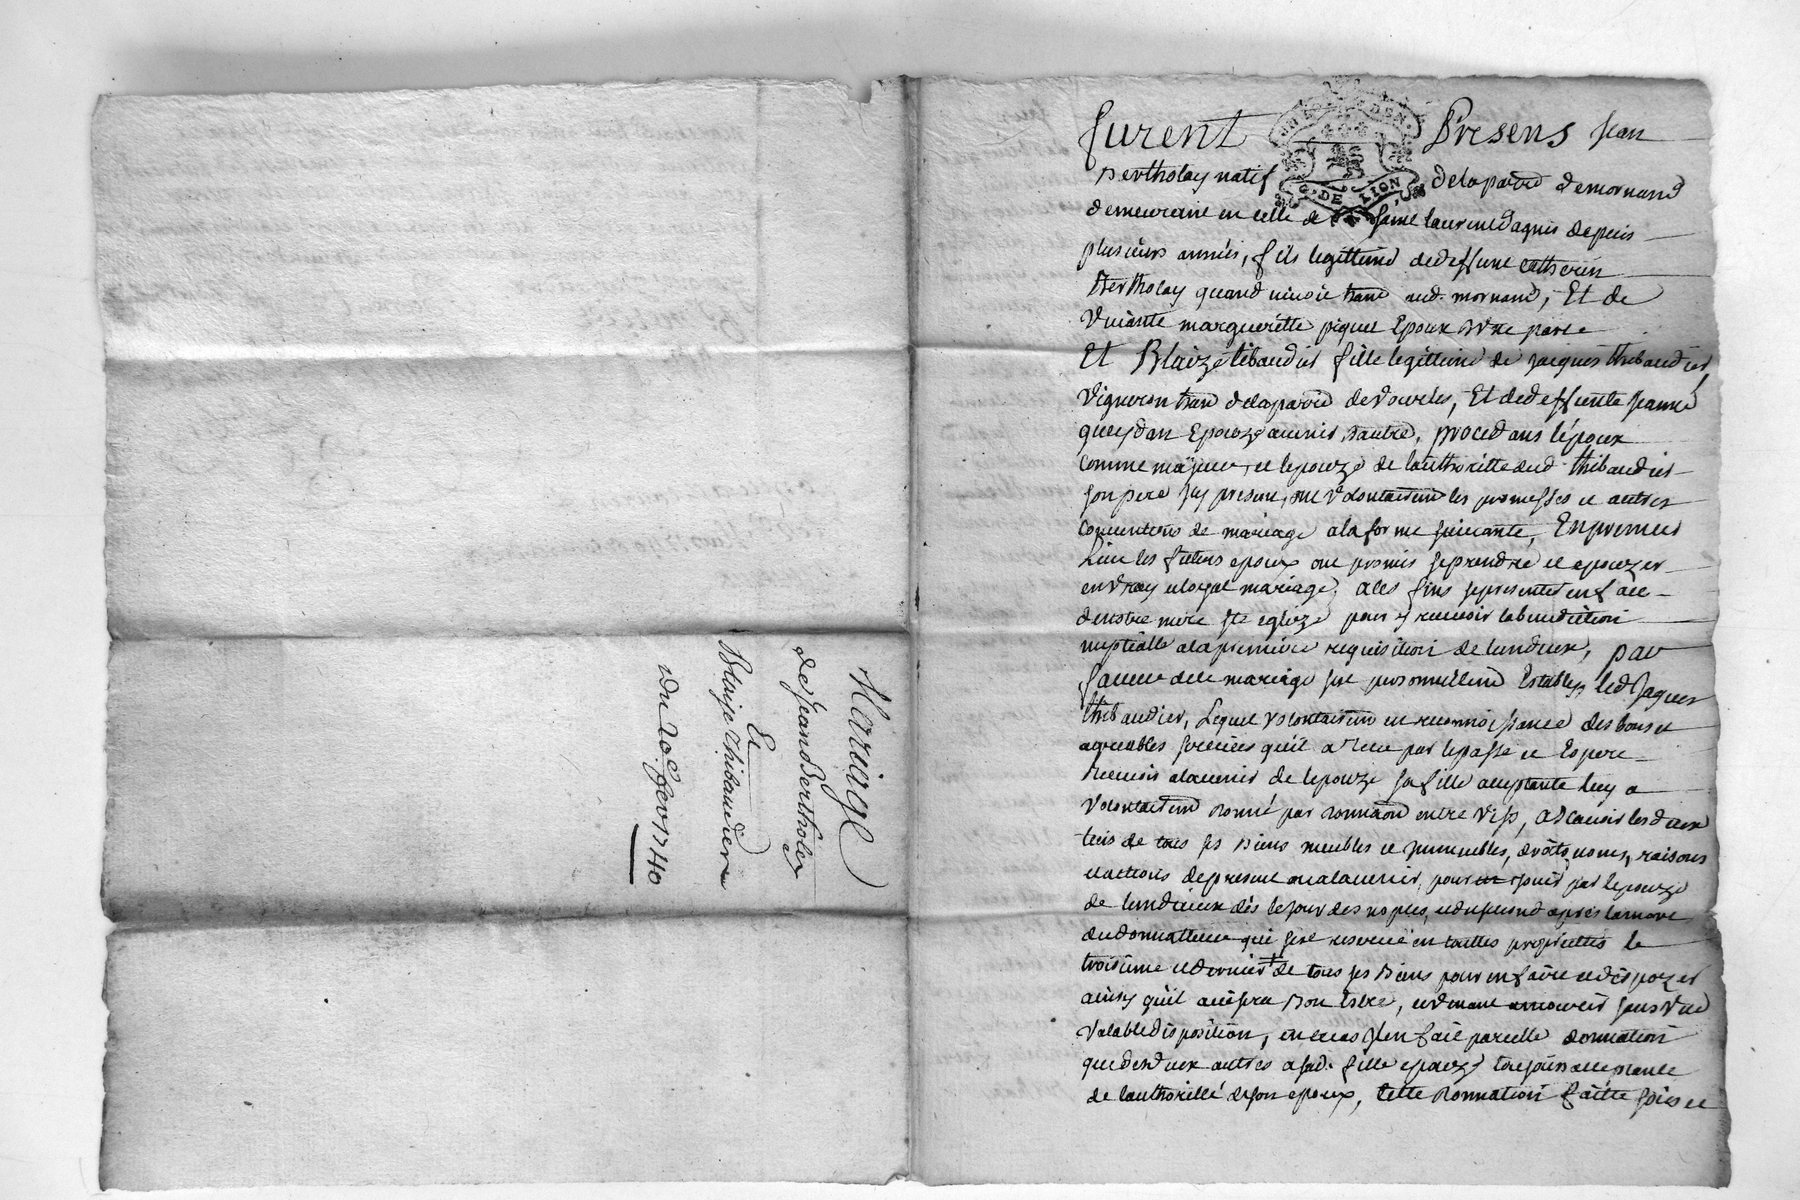 Mariage
de Jean Bertholey
Et
Blaise Thibaudier
du 20e fevr 1740
G. DE LION
furent Presens Jean
Bertholay natif de la paroi de mornand
demeurant en celle de saint laurend dagnis depuis
plusieurs années, fils legittime de deffunt catherin
Bertholay quand vivoit hant aud. mornand, Et de
vivante margueritte piquet Epoux d'Une part
Et Blaizé tibaudier fille legittime de jacques thibaudier,
vigneron hant de la paroi de vourles, Et de deffunte jeanne
gueydan Epouze avenir d'autre, procedans l'époux
comme majeur, et l'epouze de l'authoritte dud thibaudier
son pere icy present, ont volontairemt les promesses et autres
conventions de mariage a la forme suivante, En premier
Lieu les futurs epoux ont promis se prendre et epouzer
en vray et loyal mariage, a ces fins se presenter en face
de nostre mere ste eglize pour y recevoir la benediction
nuptialle a la premiere requisition de l'un d'eux, par
faveur de ce mariage s'est personnellemt Establys led Jaques
thibaudier, Lequel volontairemt en reconnoissance des bons et
agreables services qu'il a receu par le passé et Espere
recevoir a l'avenir de l'epouze sa fille acceptante luy a
volontairemt donné par donnaon entre vifs, a scavoir les deux
tiers de tous ses Biens meubles et jmmeubles, droits, noms, raisons
et actions de present ou a l'avenir, pour jouir par l'epouze
de l'un d'iceux dès le jour des nopces, et du second après la mort
du donnatteur qui s'est reservé en touttes proprietté le
troisieme et dernier de tous ses Biens pour en faire et dispozer
ainsy qu'il avisera Bon Estre, et venant a mourir sans d'Une
valable disposition, en ce cas Jl en fait pareille donnation
que des deux autres a sad. fille epouze toujours acceptante
de l'authoritté de son epoux, Cette donnation faitte sous et